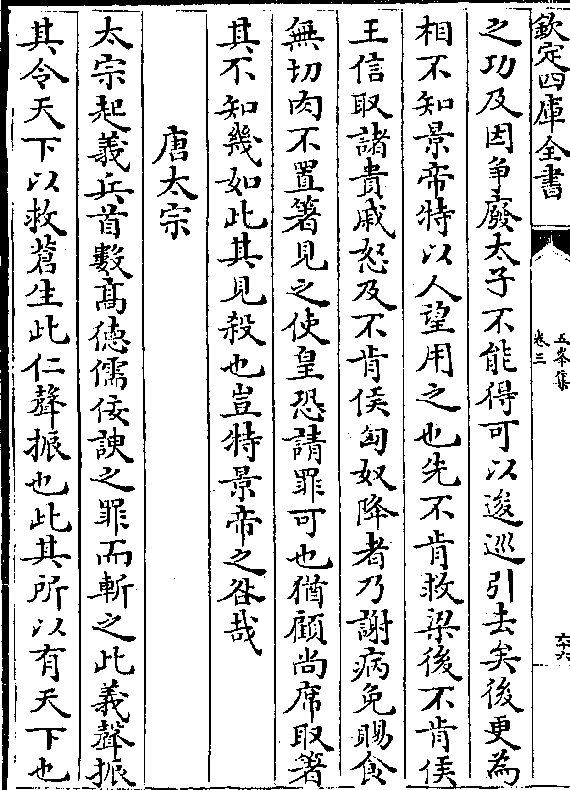 欽定四庫全書
五峯集
卷三
六十六
之功及因争廢太子不能得可以逡巡引去矣後更為
相不知景帝特以人望用之也先不肯救梁後不肯侯
王信取諸貴戚怒及不肯侯匈奴降者乃謝病免賜食
無切肉不置箸見之使皇恐請罪可也猶顧尚席取箸
其不知幾如此其見殺也豈特景帝之咎哉
唐太宗
太宗起義兵首數高德儒佞諛之罪而斬之此義聲振
其令天下以救蒼生此仁聲振也此其所以有天下也